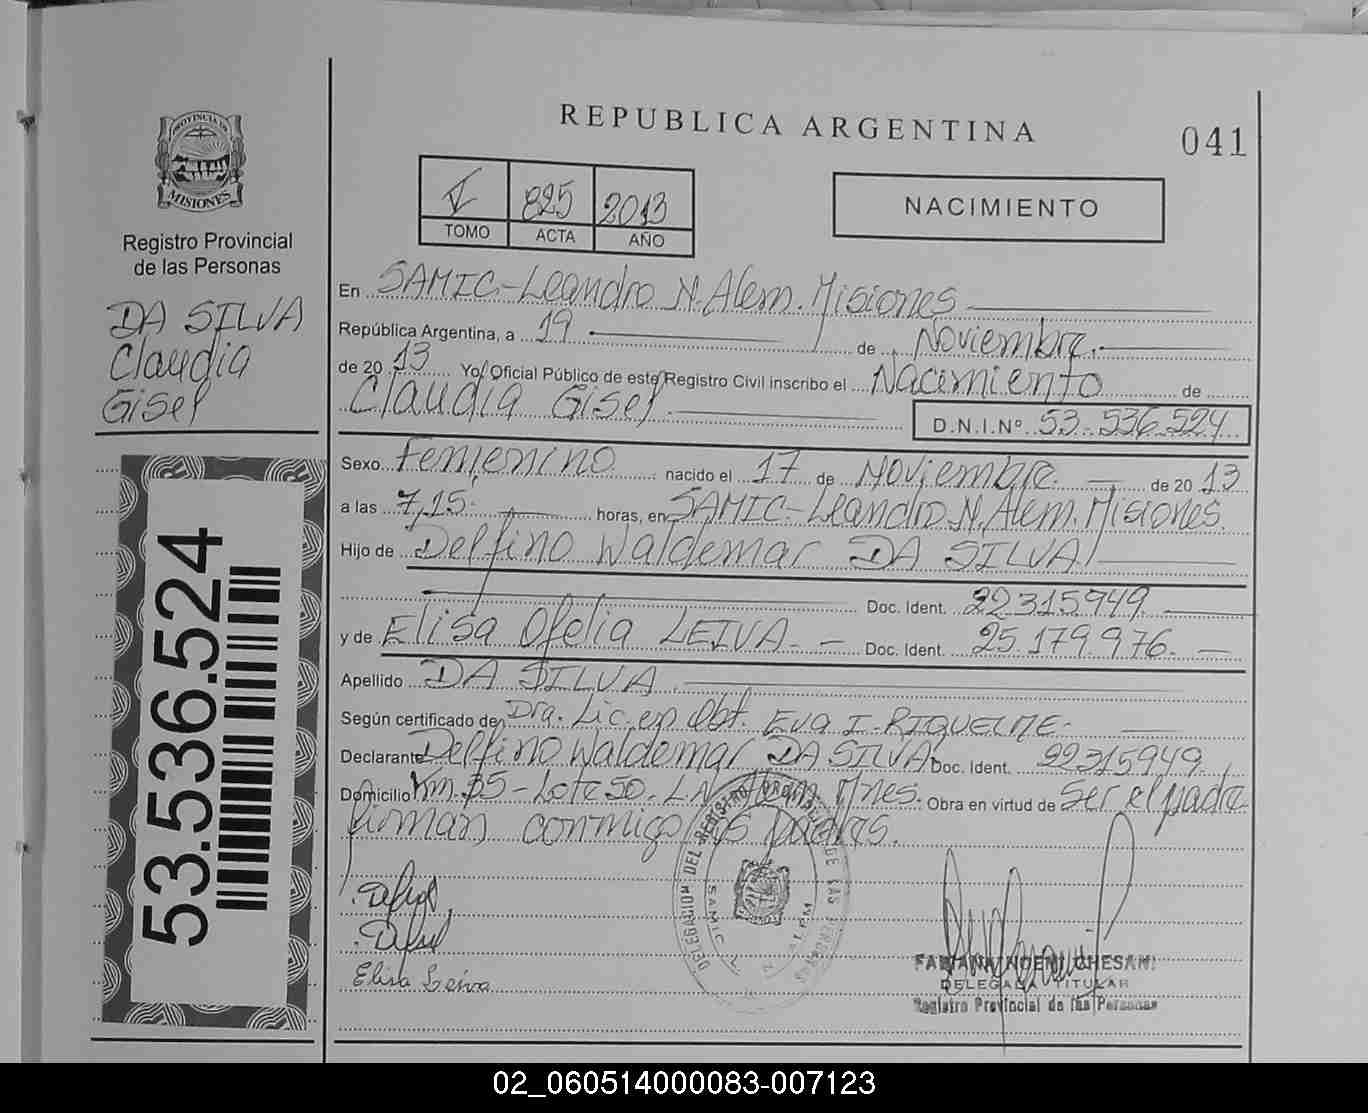 REPUBLICA ARGENTINA
041
PROVINCIA DE
MISIONES
Registro Provincial
de las Personas
DA SILVA
Claudia
Gisel
53.536.524
I 825 2013
TOMO ACTA AÑO
NACIMIENTO
En SAMIC-Leandro N. Alem. Misiones
República Argentina, a 19 de Noviembre.
de 20 13 Yo, Oficial Público de este Registro Civil inscribo el Nacimiento de
Claudia Gisel D.N.I.Nº 53.536.524
Sexo Femenino nacido el 17 de Noviembre de 20 13
a las 7,15 horas, en SAMIC-Leandro N. Alem. Misiones.
Hijo de Delfino Waldemar DA SILVA
Doc. Ident. 22315949
y de Elisa Ofelia LEIVA Doc. Ident. 25.179.976.
Apellido DA SILVA
Según certificado de Dra. Lic. en Obt. Eva I. RIQUELME
Declarante Delfino Waldemar DA SILVA Doc. Ident. 22315949
Domicilio Km. 35-Lote 50. L.N. Alem Mnes. Obra en virtud de ser el padre
firman conmigo los padres.
DELEGACION DEL REGISTRO PROVINCIAL DE LAS PERSONAS
SAMIC L. N. ALEM
Elisa Leiva
FABIANA NOEMI CHESANI
DELEGADA TITULAR
Registro Provincial de las Personas
02_060514000083-007123